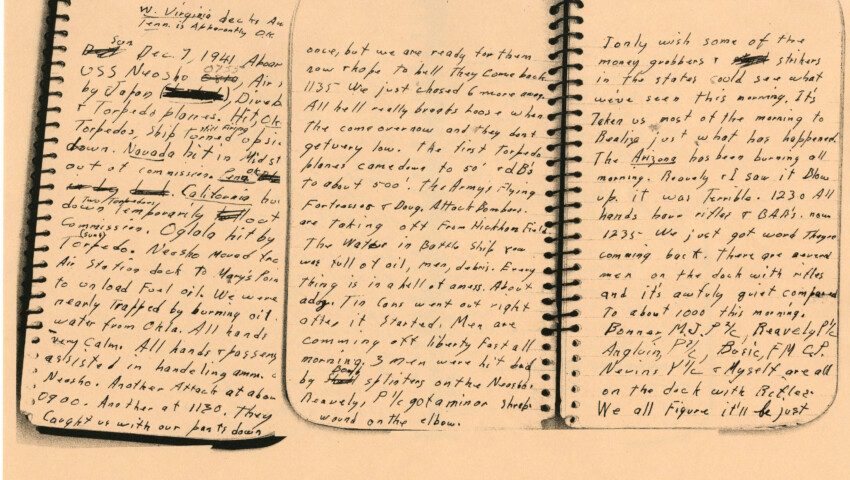 W. Virginia decks A
Tenn. is Apparently OK
Sun
Dec. 7, 1941, Aboar
USS Neosho 0735, Air
by Japan Diveb
& Torpedo planes. Hit Ok
Torpedos, Ship Still Firing Turned upsi
down. Nevada hit in Midst
out of commission Penn. ok
California bu
down Two Torpedoes Temporarily oot
Commission. Oglala hit by
(sunk)
Torpedo. Neosho Moved fro
Air Station dock To Mary's Poin
to unload Fuel oil. We were
nearly Trapped by burning oil.
water from Okla. All hands
very Calm. All hands & passeng
assisted in handeling ammo.
Neosho. Another Attack at abou
0900. Another at 1130. They
Caught us with our pants down
once, but we are ready for them
now & hope to hell They Come back
1135- We just chased 6 more away.
All hell really breaks loose when
The come over now and They dont
get very low. The first Torpedo
planes came down to 50' & dB's
to about 500'. The Army's Flying
Fortresses & Doug. Attack Bombers.
are taking off From Hickham Field.
The Water in Battle Ship row
was full of oil, men, debris. Every
thing is in a hell of a mess. About
a doz. Tin Cans went out right
after it Started. Men are
comming off liberty Fast all
morning. 3 men were hit bad
by Bomb splinters on the Neosho.
Reavely, P 1/c got a minor Shrap
wound on the elbow.
I only wish some of the
money grobbers & strikers
in the states could see what
we've seen this morning. It's
Taken us most of the morning to
Realize just what has happened.
The Arizona has been burning all
morning. Reavely & I saw it Blow
up. it was Terrible. 1230 All
hands have rifles & BAR's. now
1235- We just got word They're
comming back. There are several
men on the dock with rifles
and it's awfuly quiet compared
To about 1000 this morning.
Bonner M.J. P 3/c, Reavely P 1/c
Angluin, P 2/c, Basic, F M C.P.
Nevins Y 1/c & Myself are all
on the dock with Rifles.
We all Figure it'll be just